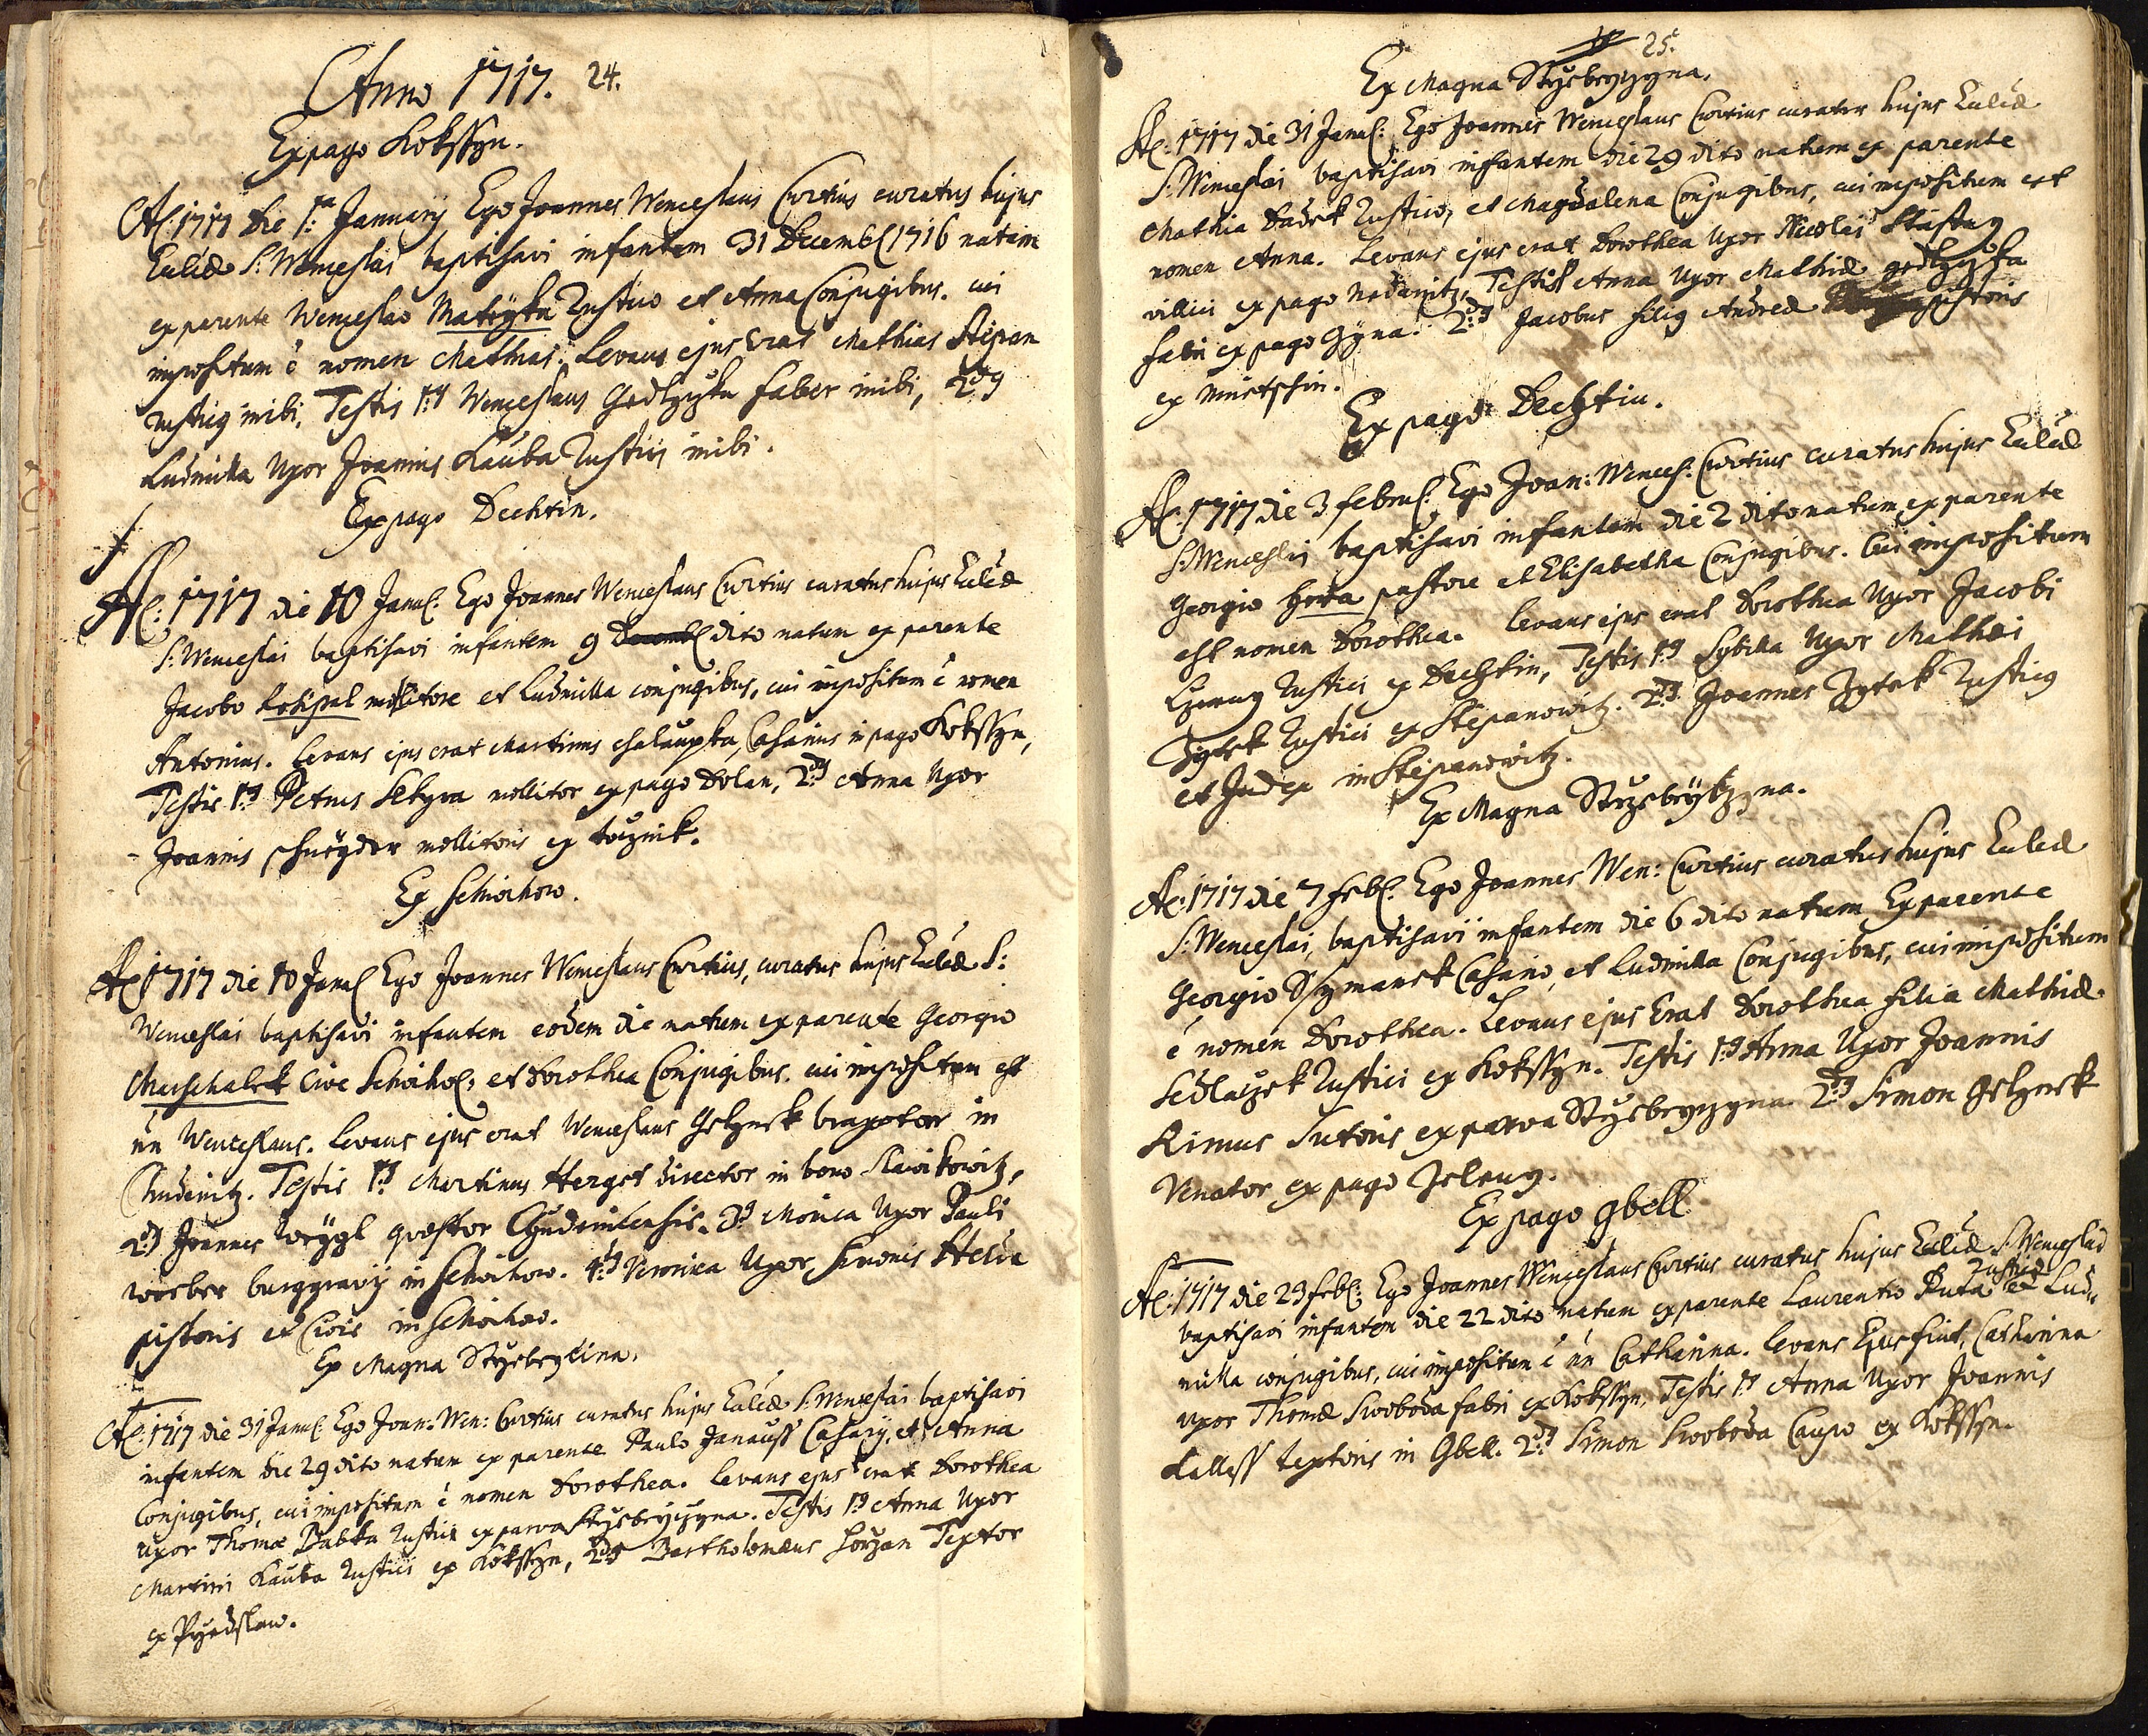 Anno 1717. 24.
Ex pago Kokssyn.
A͡o: 1717 die 1:ma January Ego Joannes Wenceslaus Curtius curatus hujus
Eccliæ S: Wenceslai baptisavi infantem 31 Decemb: 1716 natum
ex parente Wenceslao Mateyka Rustico et Anna Conjugibus. cui
impositum ē nomen Mathias. Levans ejus erat Mathias Stepan
rusticus inibi, Testis 1:us Wenceslaus faber inibi, 2:dus
Ludmilla Uxor Joannis Kauba Rustici inibi.
Ex pago Dechtin.
A͡o: 1717 die 10 Janu: Ego Joannes Wenceslaus Curtius curatus hujus Eccliæ
S: Wenceslai baptisavi infantem 9 Decemb: dito natum ex parente
Jacobo mollitore et Ludmilla conjugibus, cui impositum ē nomen
Antonius. Levans ejus erat Martinus Chalaupka, Casarius in pago Kokssyn,
Testis 1:us Petrus Sekyra mollitor ex pago Dolan, 2:dus Anna Uxor
Joannis Schneyder mollitoris ex
Ex Schwihow.
A͡o 1717 die 10 Janu: Ego Joannes Wenceslaus Curtius, curatus hujus Eccliæ S:
Wenceslai baptisavi infantem eodem die natum ex parente Georgio
Marschalek Cive Schwiho: et Dorothea Conjugibus. cui impositum est
nn Wenceslaus. Levans ejus erat Wenceslaus Gelynek braxator in
Chudenitz. Testis 1:us Martinus Herget director in bono Slawikowitz,
2:dus Joannes Weygl quæstor Chudenicensis. 3:us Monica Uxor Pauli
Worber burggravy in Schwihow. 4:tus Veronica Uxor Simonis
pistoris et Civis in Schwihow.
Ex Magna Stzebrycina.
A͡o: 1717 die 31 Janu: Ego Joan: Wen: Curtius curatus hujus Eccliæ S: Wenceslai baptisavi
infantem die 29 dito natum ex parente Paulo Janauss Casary, et Anna
Conjugibus, cui impositum ē nomen Dorothea. Levans ejus erat Dorothea
Uxor Thomæ Babka Rustici ex parva Stzebryczyna. Testis 1:us Anna Uxor
Martini Kauba Rustici ex Kokssyn, 2:dus Bartholomæus Textor
ex Przedslaw.
25.
Ex Magna Stzebryczyna.
A͡o: 1717 die 31 Janu: Ego Joannes Wenceslaus Curtius curator hujus Eccliæ
S: Wenceslai baptisavi infantem die 29 dito natum ex parente
Mathia Dudek Rustico, et Magdalena Conjugibus, cui impositum est
nomen Anna. Levans ejus erat Dorothea Uxor Nicolai Stastny
villici ex pago Nedanitz, Testis Anna Uxor Mathiæ
fabri ex pago Gyna. 2:dus Jacobus filius Andreæ pistoris
ex
Ex pago Dechtin.
A͡o: 1717 die 3 Febru: Ego Joan: Wences: Curtius curatus hujus Eccliæ
S: Wenceslai baptisavi infantem die 2 dito natum ex parente
Georgio pastore et Elisabetha Conjugibus. Cui impositum
est nomen Dorothea. Levans ejus erat Dorothea Uxor Jacobi
Czerny Rustici ex Dechtin, Testis 1:us Sybilla Uxor Mathæi
Zytek Rustici ex Stepanowitz. 2:dus Joannes Zytek Rusticus
et Judex in Stepanowitz.
Ex Magna Stzebryczyna.
A͡o: 1717 die 7 Feb: Ego Joannes Wen: Curtius curatus hujus Eccliæ
S: Wenceslai, baptisavi infantem die 6 dito natum Ex parente
Georgio Ssymanek Casario, et Ludmilla Conjugibus, cui impositum
ē nomen Dorothea. Levans ejus Erat Dorothea filia Mathiæ
Sedlaczek Rustici ex Kokssyn. Testis 1:us Anna Uxor Joannis
Rimus Sutoris ex parva Stzebryczyna 2:dus Simon Gelynek
Venator ex pago Zeleny.
Ex pago Gbell
A͡o: 1717 die 23 Feb: Ego Joannes Wenceslaus Curtius curatus hujus Eccliæ S: Wenceslai
baptisavi infantem die 22 dito natum ex parente Laurentio Duta Rustico et Lud-
milla conjugibus, cui impositum ē nn Catharina. Levans Ejus fuit, Catharina
Uxor Thomæ Swoboda fabri ex Kokssyn, Testis 1:us Anna Uxor Joannis
Kalless textoris in Gbell. 2:dus Simon Swoboda Caupo ex Kokssyn.